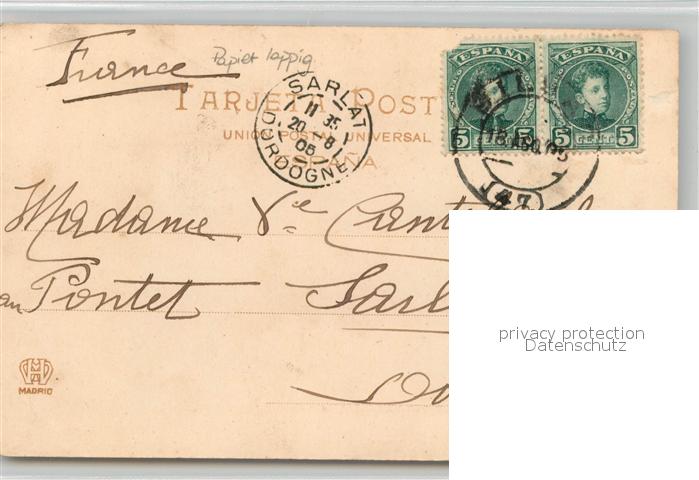 France
Papier lappig
TARJETA POST
UNION POSTAL UNIVERSAL
ESPAÑA
SARLAT
11 35
20 - 8
05
DORDOGNE
ESPAÑA ESPAÑA
5 CENT 5 5 CENT 5
18 AGO 05
(47)
Madame Vve
au Pontet Sarl
MADRID
privacy protection
Datenschutz